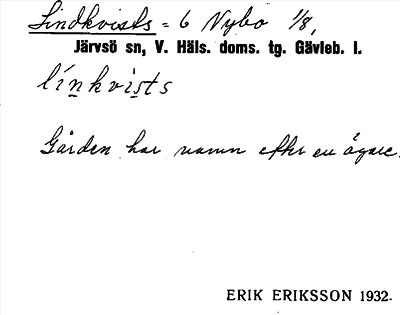 Lindkvists = 6 Nybo 1/8,
Järvsö sn, V. Häls. doms. tg. Gävleb. l.
línkvists
Gården har namn efter en ägare.
ERIK ERIKSSON 1932.